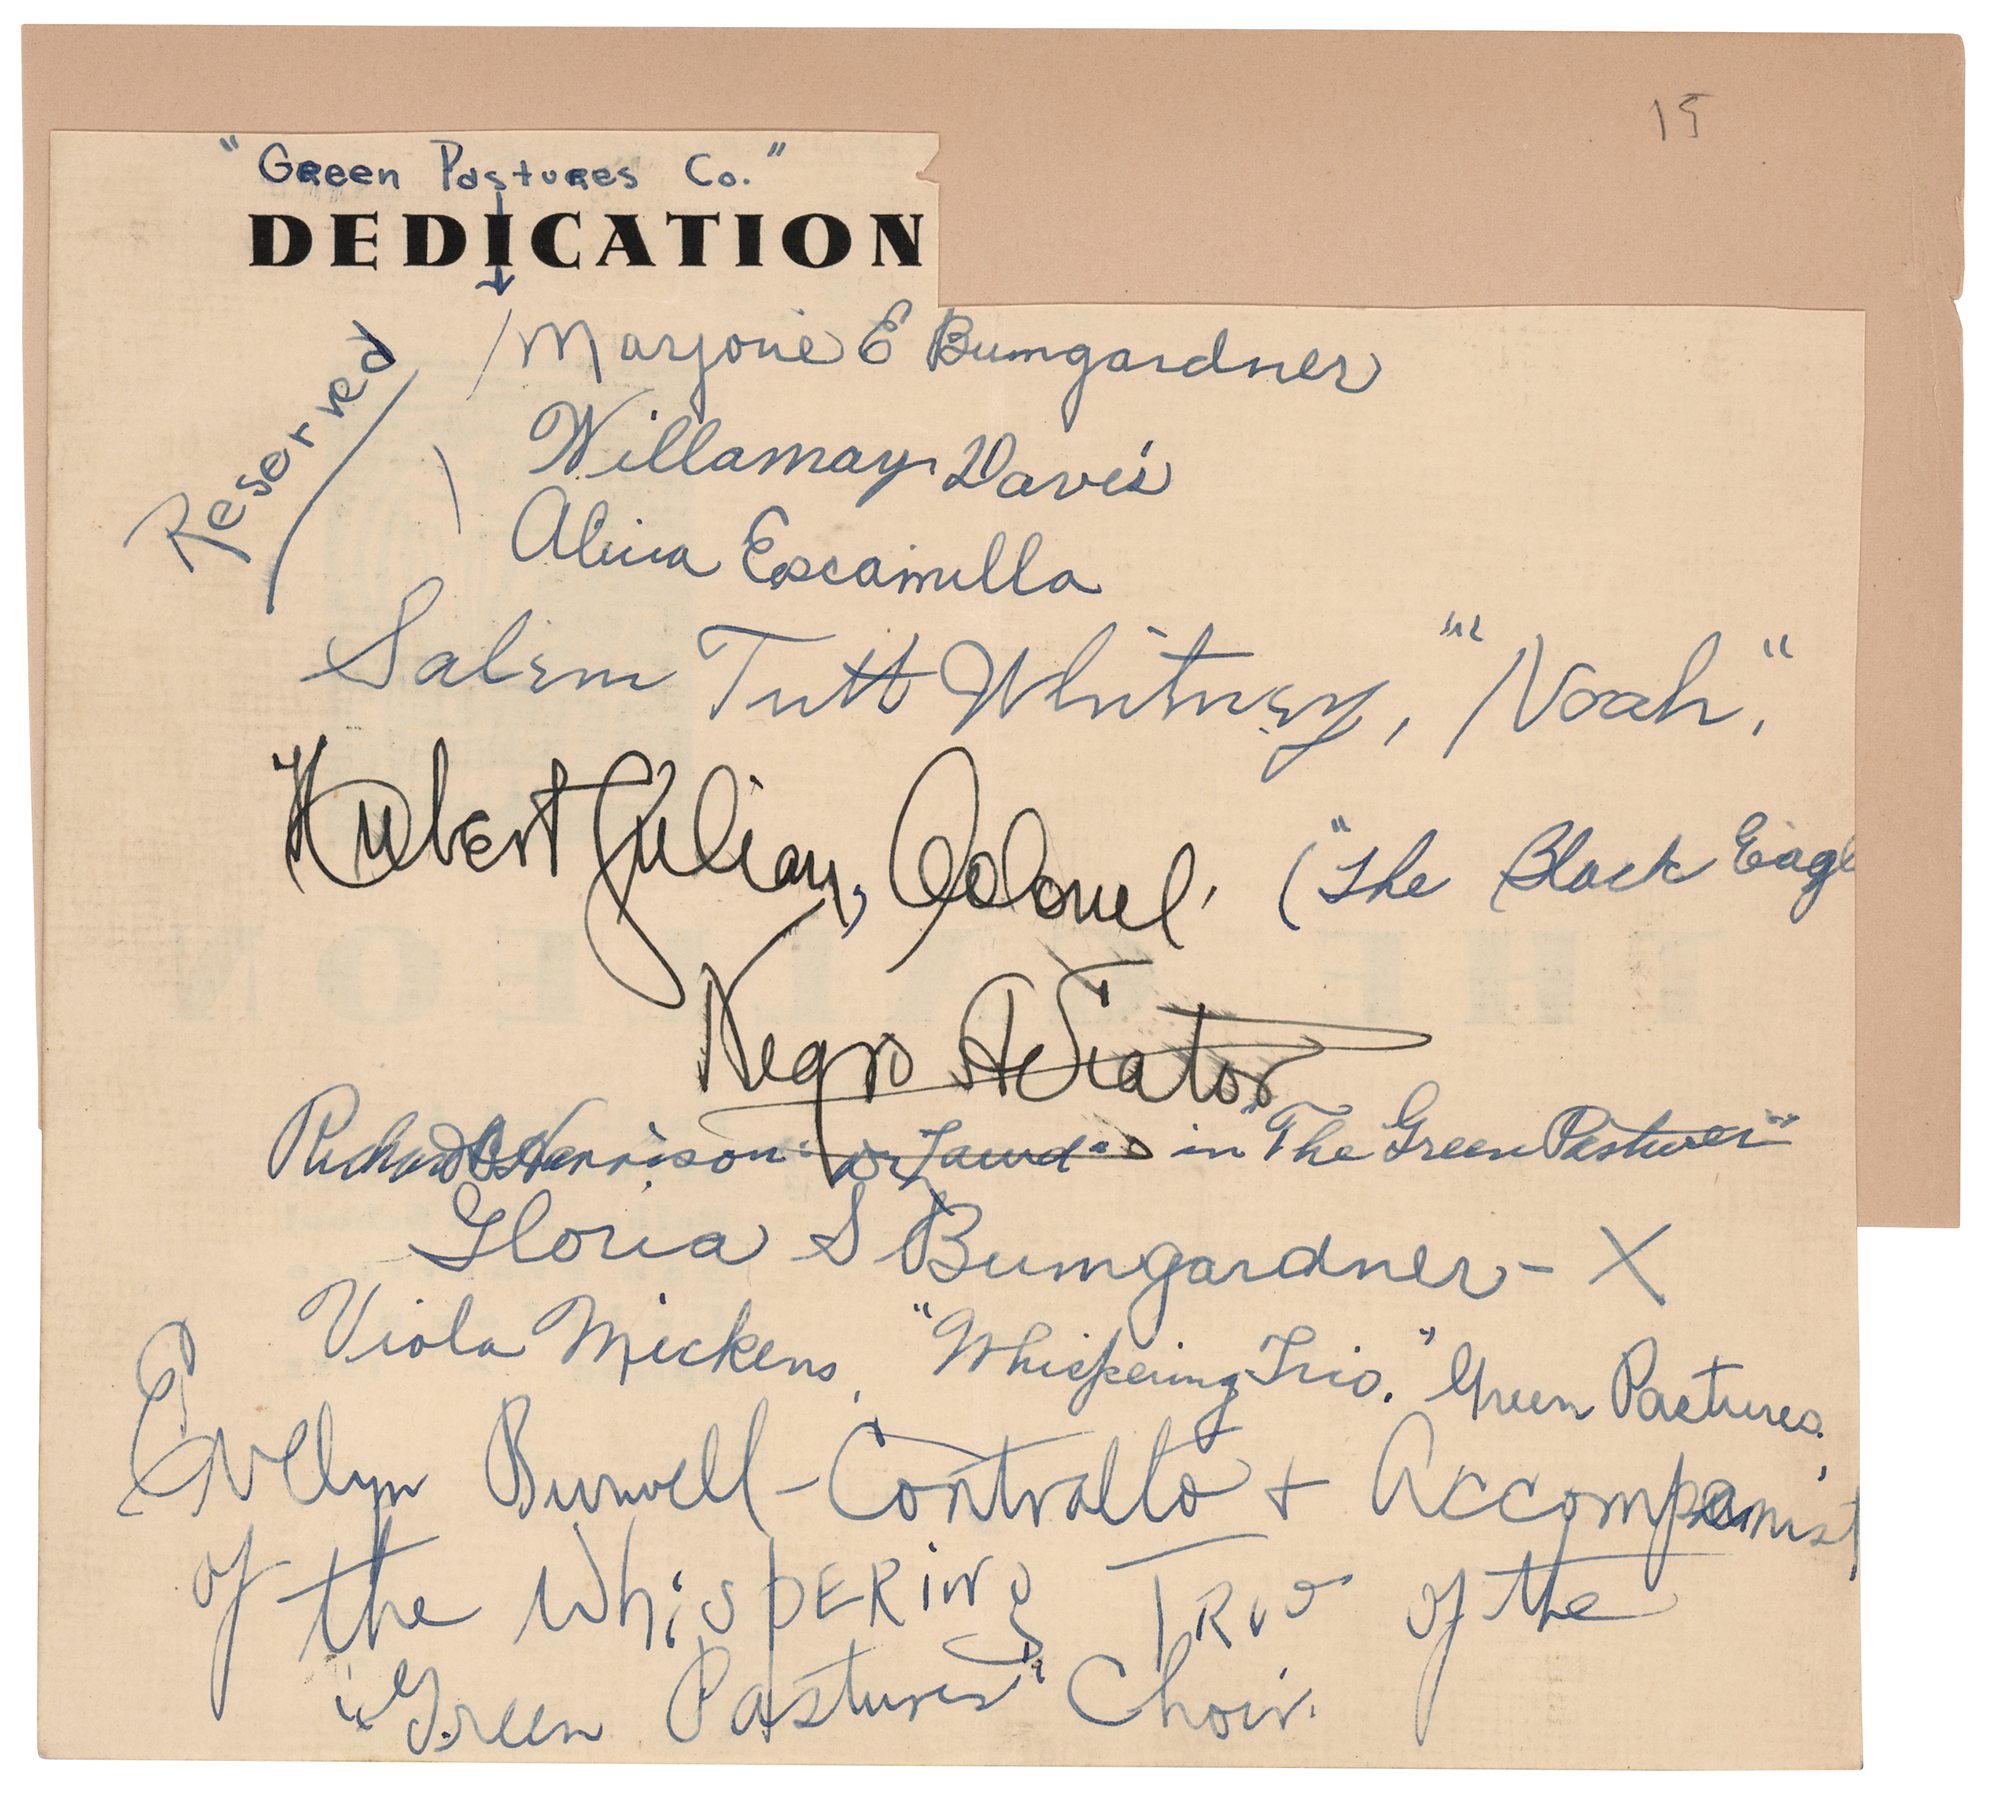 15
"Green Pastures Co."
DEDICATION
Reserved
Marjorie E Bumgardner
Willamay Davis
Alicia Escamilla
Salem Tutt Whitney, "Noah,"
Hubert Julian, Colonel. ("The Black Eagl
Negro Aviator
Richard B Harrison: "De Lawd" in "The Green Pastures"
Gloria S Bumgardner - X
Viola Mickens, "Whispering Trio." Green Pastures.
Evelyn Burwell - Contralto + Accompanist
of the Whispering Trio of the
"Green Pastures" Choir.